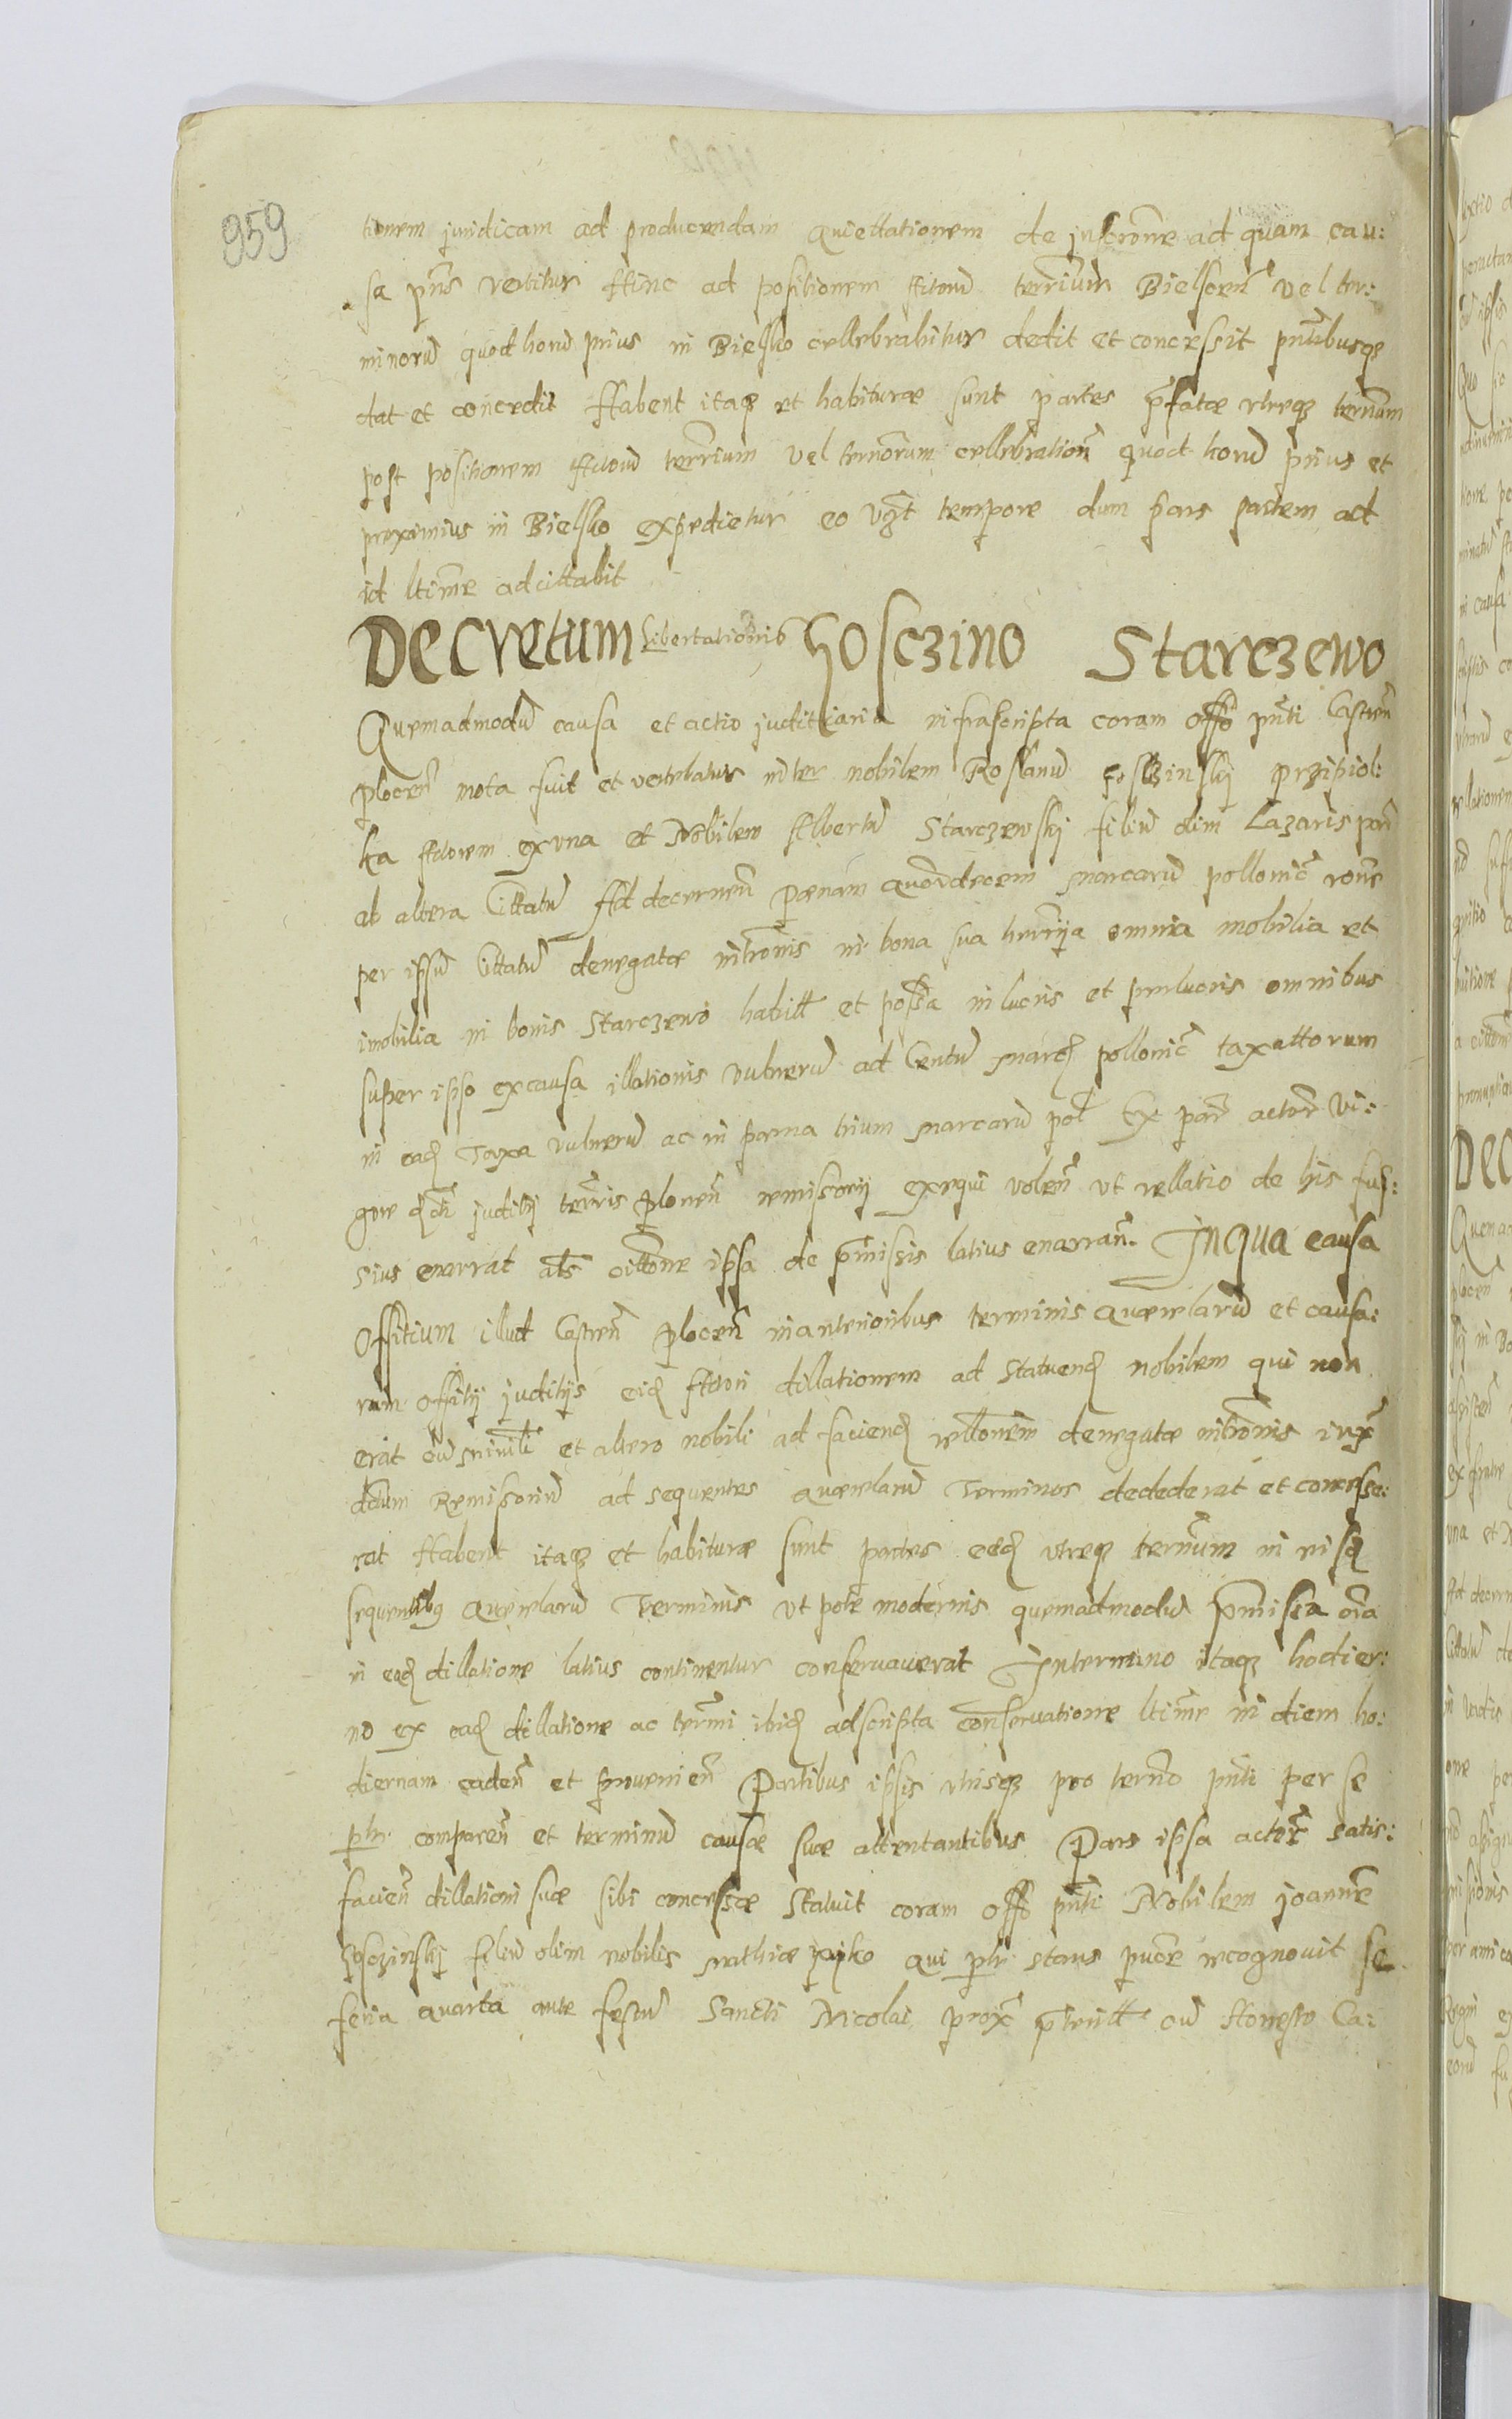 959
tionem juridicam ad producendam quiettationem de inscrōne ad quam cau:
sa pn̄s vertitur Hinc ad positionem Actorū terr̄ium Bielscen̄ vel ter:
minorū quod horū prius in Bielsko cellebrabitur dedit et concessit pn̄tibusq3
dat et concedit Habent itaq3 et habituræ sunt partes p̄fatæ utreq3 term̄num
post positionem Actorū terr̄ium vel termōrum cellebration̄ quod horū prius et
proximius in Bielsko expedietur eo vz̄t tempore dum pars partem ad
id ltim̄e adcittabit
Decretum Libertationis Hosczino Starczewo
Quemadmodū causa et actio juditiaria infrascripta coram offō pn̄ti Castren̄
plocen̄ mota fuit et vertebatur inter nobilem Roslanū Gosczinskj przipiol:
ka Actorem ex una et Nobilem Albertū Starczewskj filiū olim Lazaris par̄
ab altera Cittatū Ad decernen̄ pænam quord̄ecem marcarū pollonic̄ rōne
per ipsū Cittatū denegatæ intrōnis in bona sua herr̄ija omnia mobilia et
imobilia in bonis Starczewo habitt et possa in lucris et perlucris omnibus
super ipso ex causa illationis vulnerū ad Centū marcꝭ pollonic̄ taxattorum
in eadꝭ Taxa vulnerū ac in pæna trium marcarū pol Ex par̄ actor̄ vi:
gore dc̄ti juditij terr̄is plocen̄ remissorij exequi volen̄ ut rellatio de his fu:
sius enarrat ats̄ cittōne ipsa de p̄missis latius enarran̄. In qua causa
Offitium illud Castren̄ plocen̄ in anterioribus terminis quærelarū et causa:
rum offitij juditijs eidꝭ Actori dillationem ad statuendꝭ nobilem qui non
erat cū simili et altero nobili ad faciendꝭ rellōnem denegatæ intrōnis iux̄
dc̄tum Remissoriū ad sequentes quærelarū Terminos dedederat et concesse:
rat Habent itaq3 et habituræ sunt partes eædꝭ utreq3 term̄num in iisdꝭ
sequentibus quærelarū Terminis ut pote modernis quemadmodū p̄missa oīa
in eadꝭ dillatione latius continentur conservaverat In termino itaq3 hodier:
no ex eadꝭ dillatione ac term̄i ibidꝭ adscripta conservatione ltim̄e in diem ho:
diernam caden̄ et provenien̄ Partibus ipsis utrisq3 pro term̄o pn̄ti per se
plr̄ comparen̄ et terminū causæ suæ attentantibus Pars ipsa actor̄ satis:
facien̄ dillationi suæ sibi concessæ statuit coram offō pn̄ti Nobilem joannē
Gosczinskj filiū olim nobilis mathiæ qui plr̄ stans recognovit se
feria quarta ante festū Sancti Nicolai prox̄ p̄teritt cū Honesto Ca: